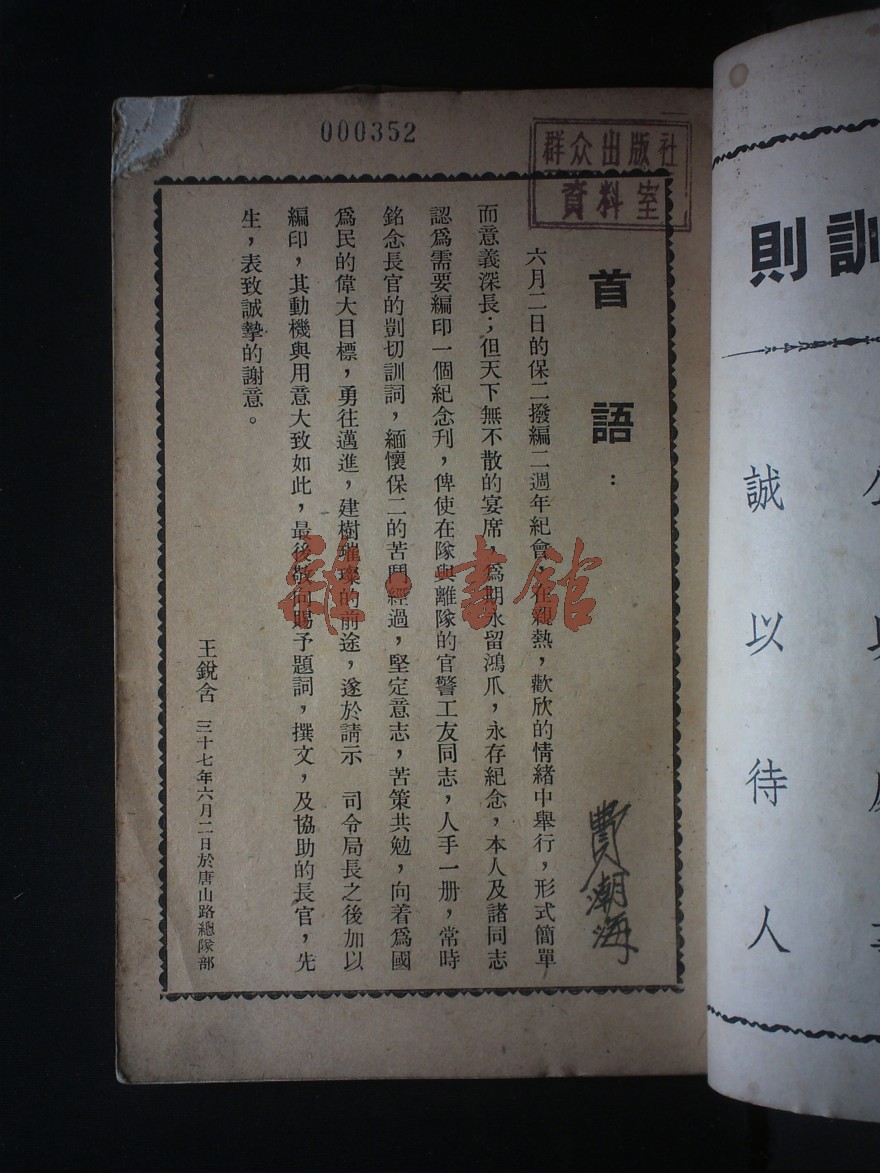 000352
群众出版社
資料室
訓則
誠以待人
首語：
六月二日的保二撥編二週年紀會，在親熱，歡欣的情緒中舉行，形式簡單
而意義深長；但天下無不散的宴席，爲期永留鴻爪，永存紀念，本人及諸同志
認爲需要編印一個紀念刊，俾使在隊與離隊的官警工友同志，人手一册，常時
銘念長官的剴切訓詞，緬懷保二的苦鬥經過，堅定意志，苦策共勉，向着爲國
爲民的偉大目標，勇往邁進，建樹璀璨的前途，遂於請示　司令局長之後加以
編印，其動機與用意大致如此，最後敬向賜予題詞，撰文，及協助的長官，先
生，表致誠摯的謝意。
王銳含 三十七年六月二日於唐山路總隊部
費潮海
雜·書館